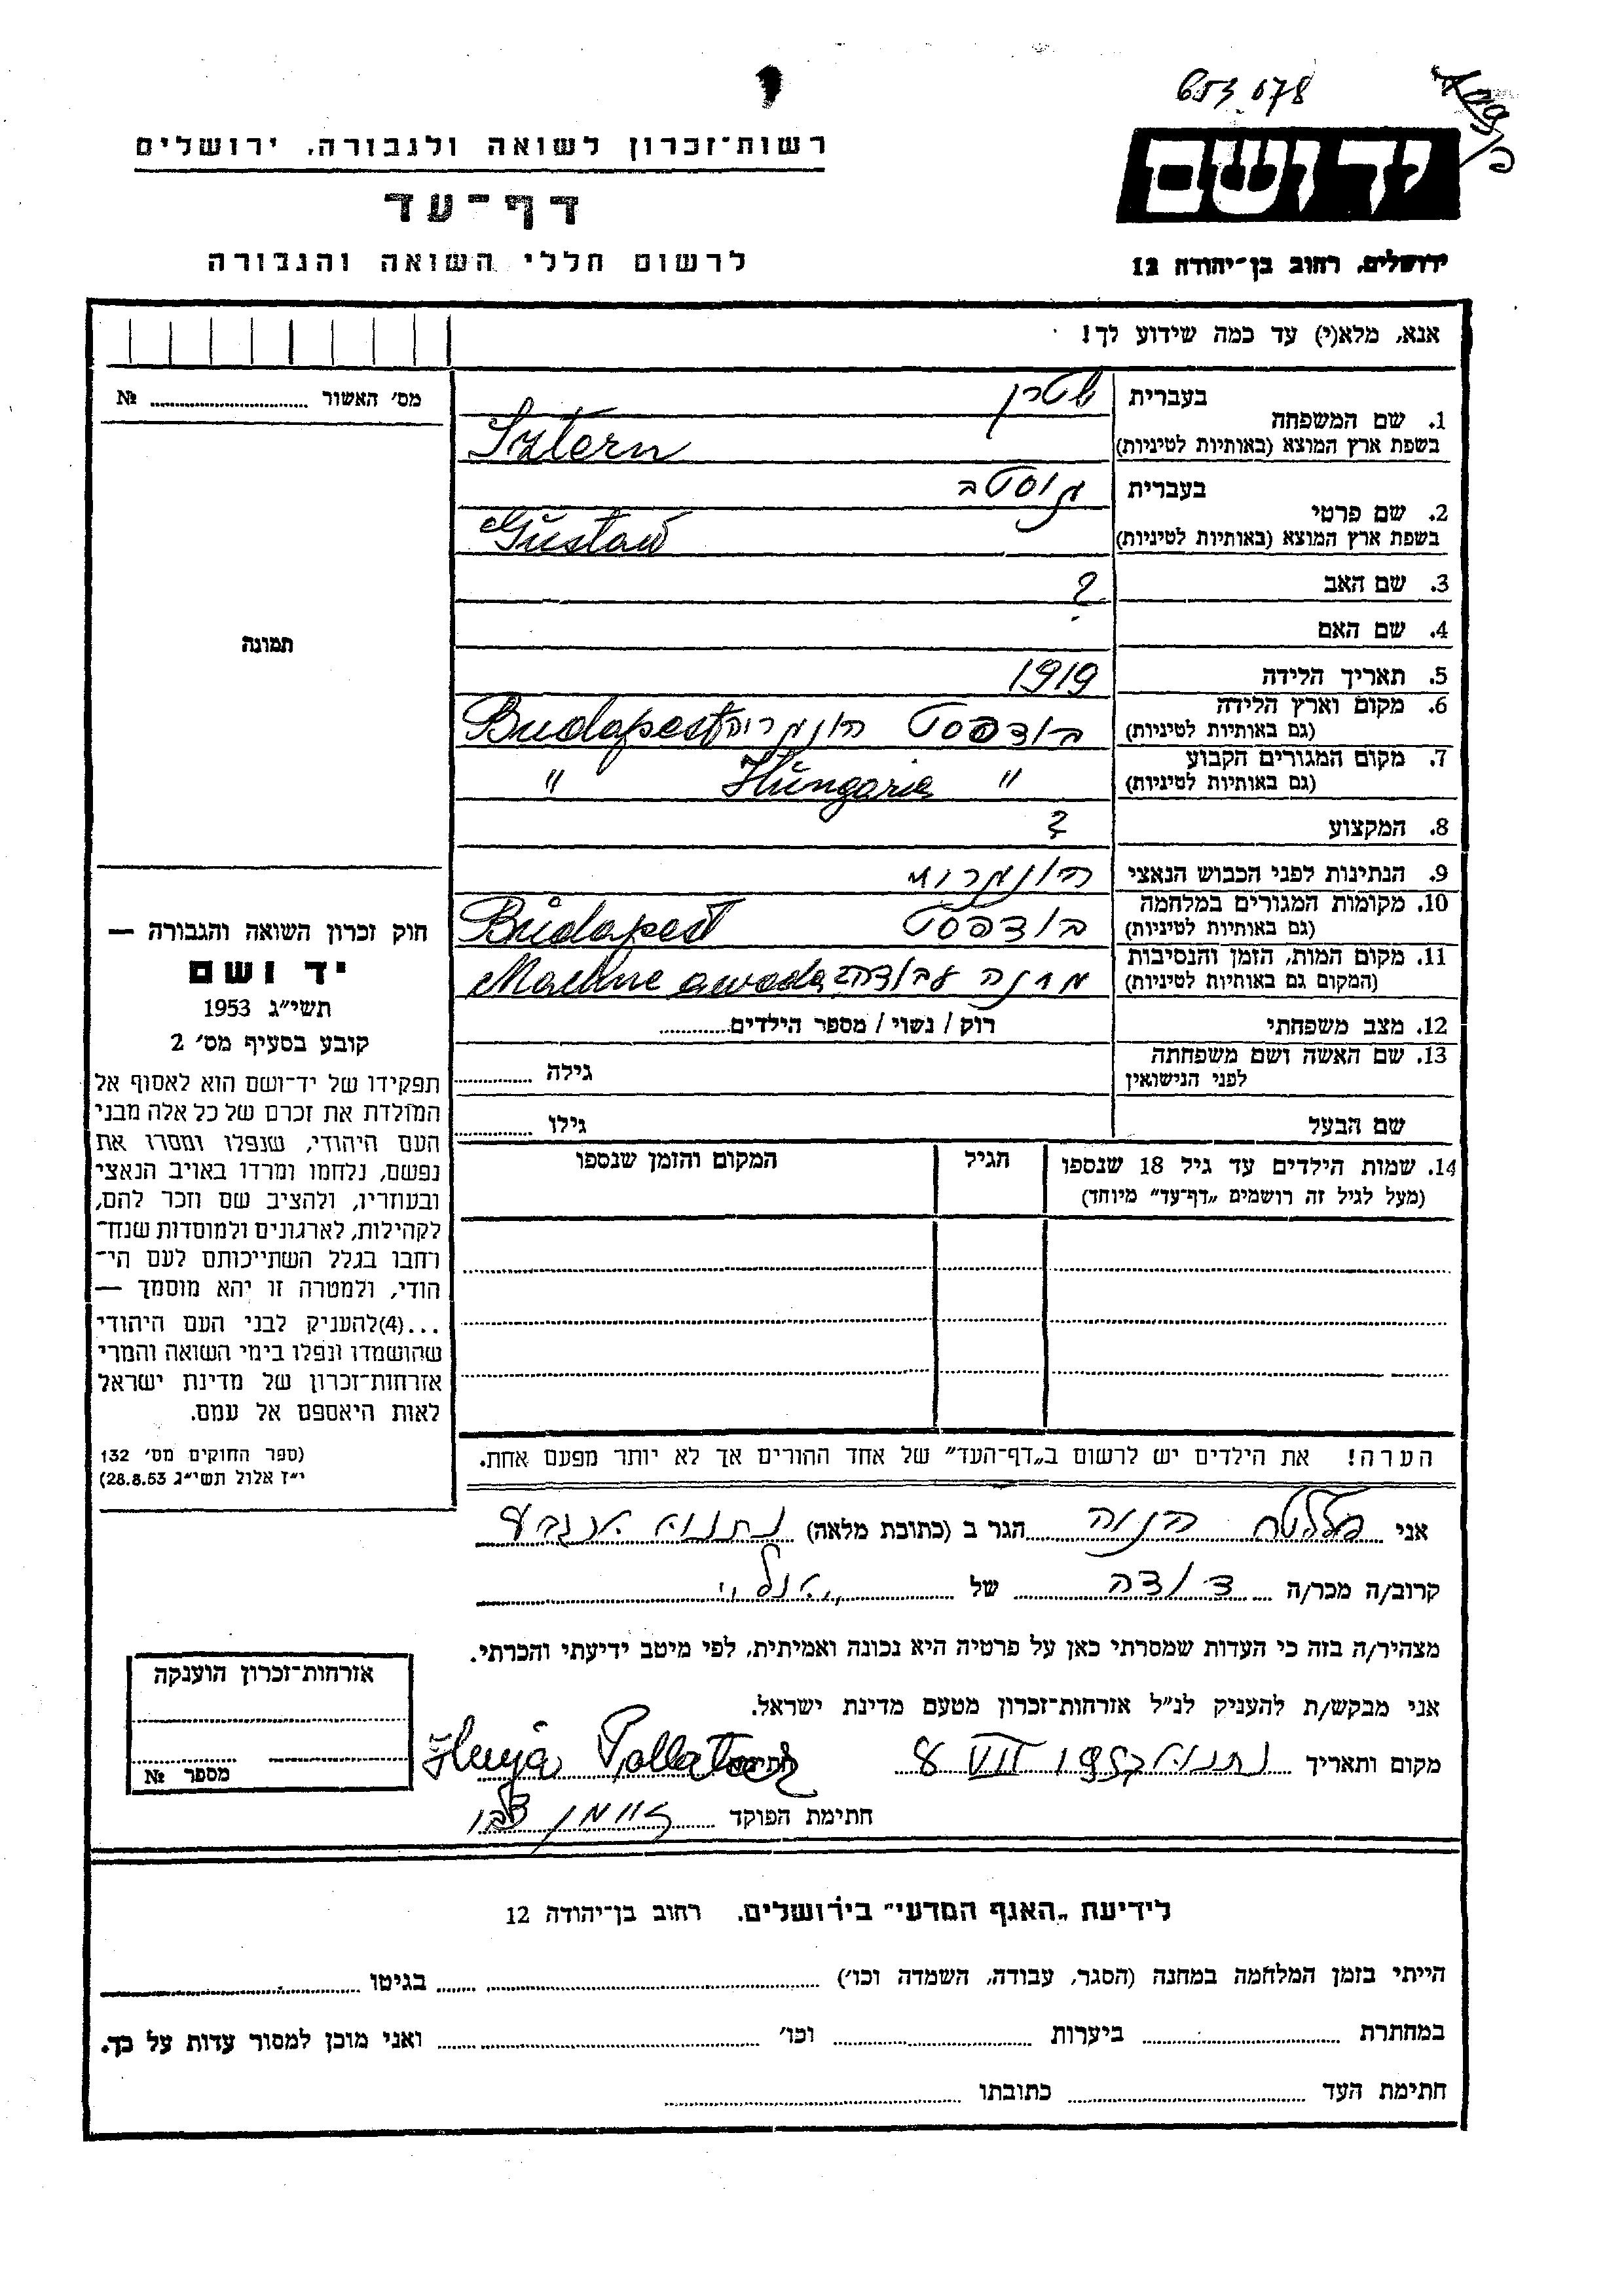 653 078
רשות־זכרון לשואה ולגבורה, ירושלים
יד ושם
דף־עד
לרשום חללי השואה והגבורה
ירושלים, רחוב בן־יהודה 12
אנא, מלא(י) עד כמה שידוע לך!
מס׳ האשור ........ №
תמונה
1. שם המשפחה בעברית שטרן
בשפת ארץ המוצא (באותיות לטיניות) Sztern
2. שם פרטי בעברית גוסטב
בשפת ארץ המוצא (באותיות לטיניות) Gustaw
3. שם האב ?
4. שם האם
5. תאריך הלידה 1919
6. מקום וארץ הלידה (גם באותיות לטיניות) בודפסט הונגריה Budapest
7. מקום המגורים הקבוע (גם באותיות לטיניות) " Hungaria "
8. המקצוע ?
9. הנתינות לפני הכבוש הנאצי הונגרית
10. מקומות המגורים במלחמה (גם באותיות לטיניות) בודפסט Budapest
11. מקום המות, הזמן והנסיבות (המקום גם באותיות לטיניות) מחנה עבודה Machne awoda
12. מצב משפחתי רוק / נשוי / מספר הילדים........
13. שם האשה ושם משפחתה לפני הנישואין גילה ........
שם הבעל גילו ........
14. שמות הילדים עד גיל 18 שנספו הגיל המקום והזמן שנספו
(מעל לגיל זה רושמים „דף־עד״ מיוחד)
חוק זכרון השואה והגבורה —
יד ושם
תשי״ג 1953
קובע בסעיף מס׳ 2
תפקידו של יד־ושם הוא לאסוף אל
המולדת את זכרם של כל אלה מבני
העם היהודי, שנפלו ומסרו את
נפשם, נלחמו ומרדו באויב הנאצי
ובעוזריו, ולהציב שם וזכר להם,
לקהילות, לארגונים ולמוסדות שנח־
רחבו בגלל השתייכותם לעם הי־
הודי, ולמטרה זו יהא מוסמך —
...(4)להעניק לבני העם היהודי
שהושמדו ונפלו בימי השואה והמרי
אזרחות־זכרון של מדינת ישראל
לאות היאספם אל עמם.
(ספר החוקים מס׳ 132
י״ז אלול תשי״ג 28.8.53)
הערה! את הילדים יש לרשום ב„דף־העד״ של אחד ההורים אך לא יותר מפעם אחת.
אני חנוה הגר ב (כתובת מלאה) נתניה
קרוב/ה מכר/ה דודה של
מצהיר/ה בזה כי העדות שמסרתי כאן על פרטיה היא נכונה ואמיתית, לפי מיטב ידיעתי והכרתי.
אני מבקש/ת להעניק לנ״ל אזרחות־זכרון מטעם מדינת ישראל.
מקום ותאריך נתניה 8 VII 1957 חתימה
חתימת הפוקד
אזרחות־זכרון הוענקה
מספר №
לידיעת „האגף המדעי״ בירושלים, רחוב בן־יהודה 12
הייתי בזמן המלחמה במחנה (הסגר, עבודה, השמדה וכו׳) ........ בגיטו ........
במחתרת ........ ביערות ........ וכו׳ ........ ואני מוכן למסור עדות על כך.
חתימת העד ........ כתובתו ........